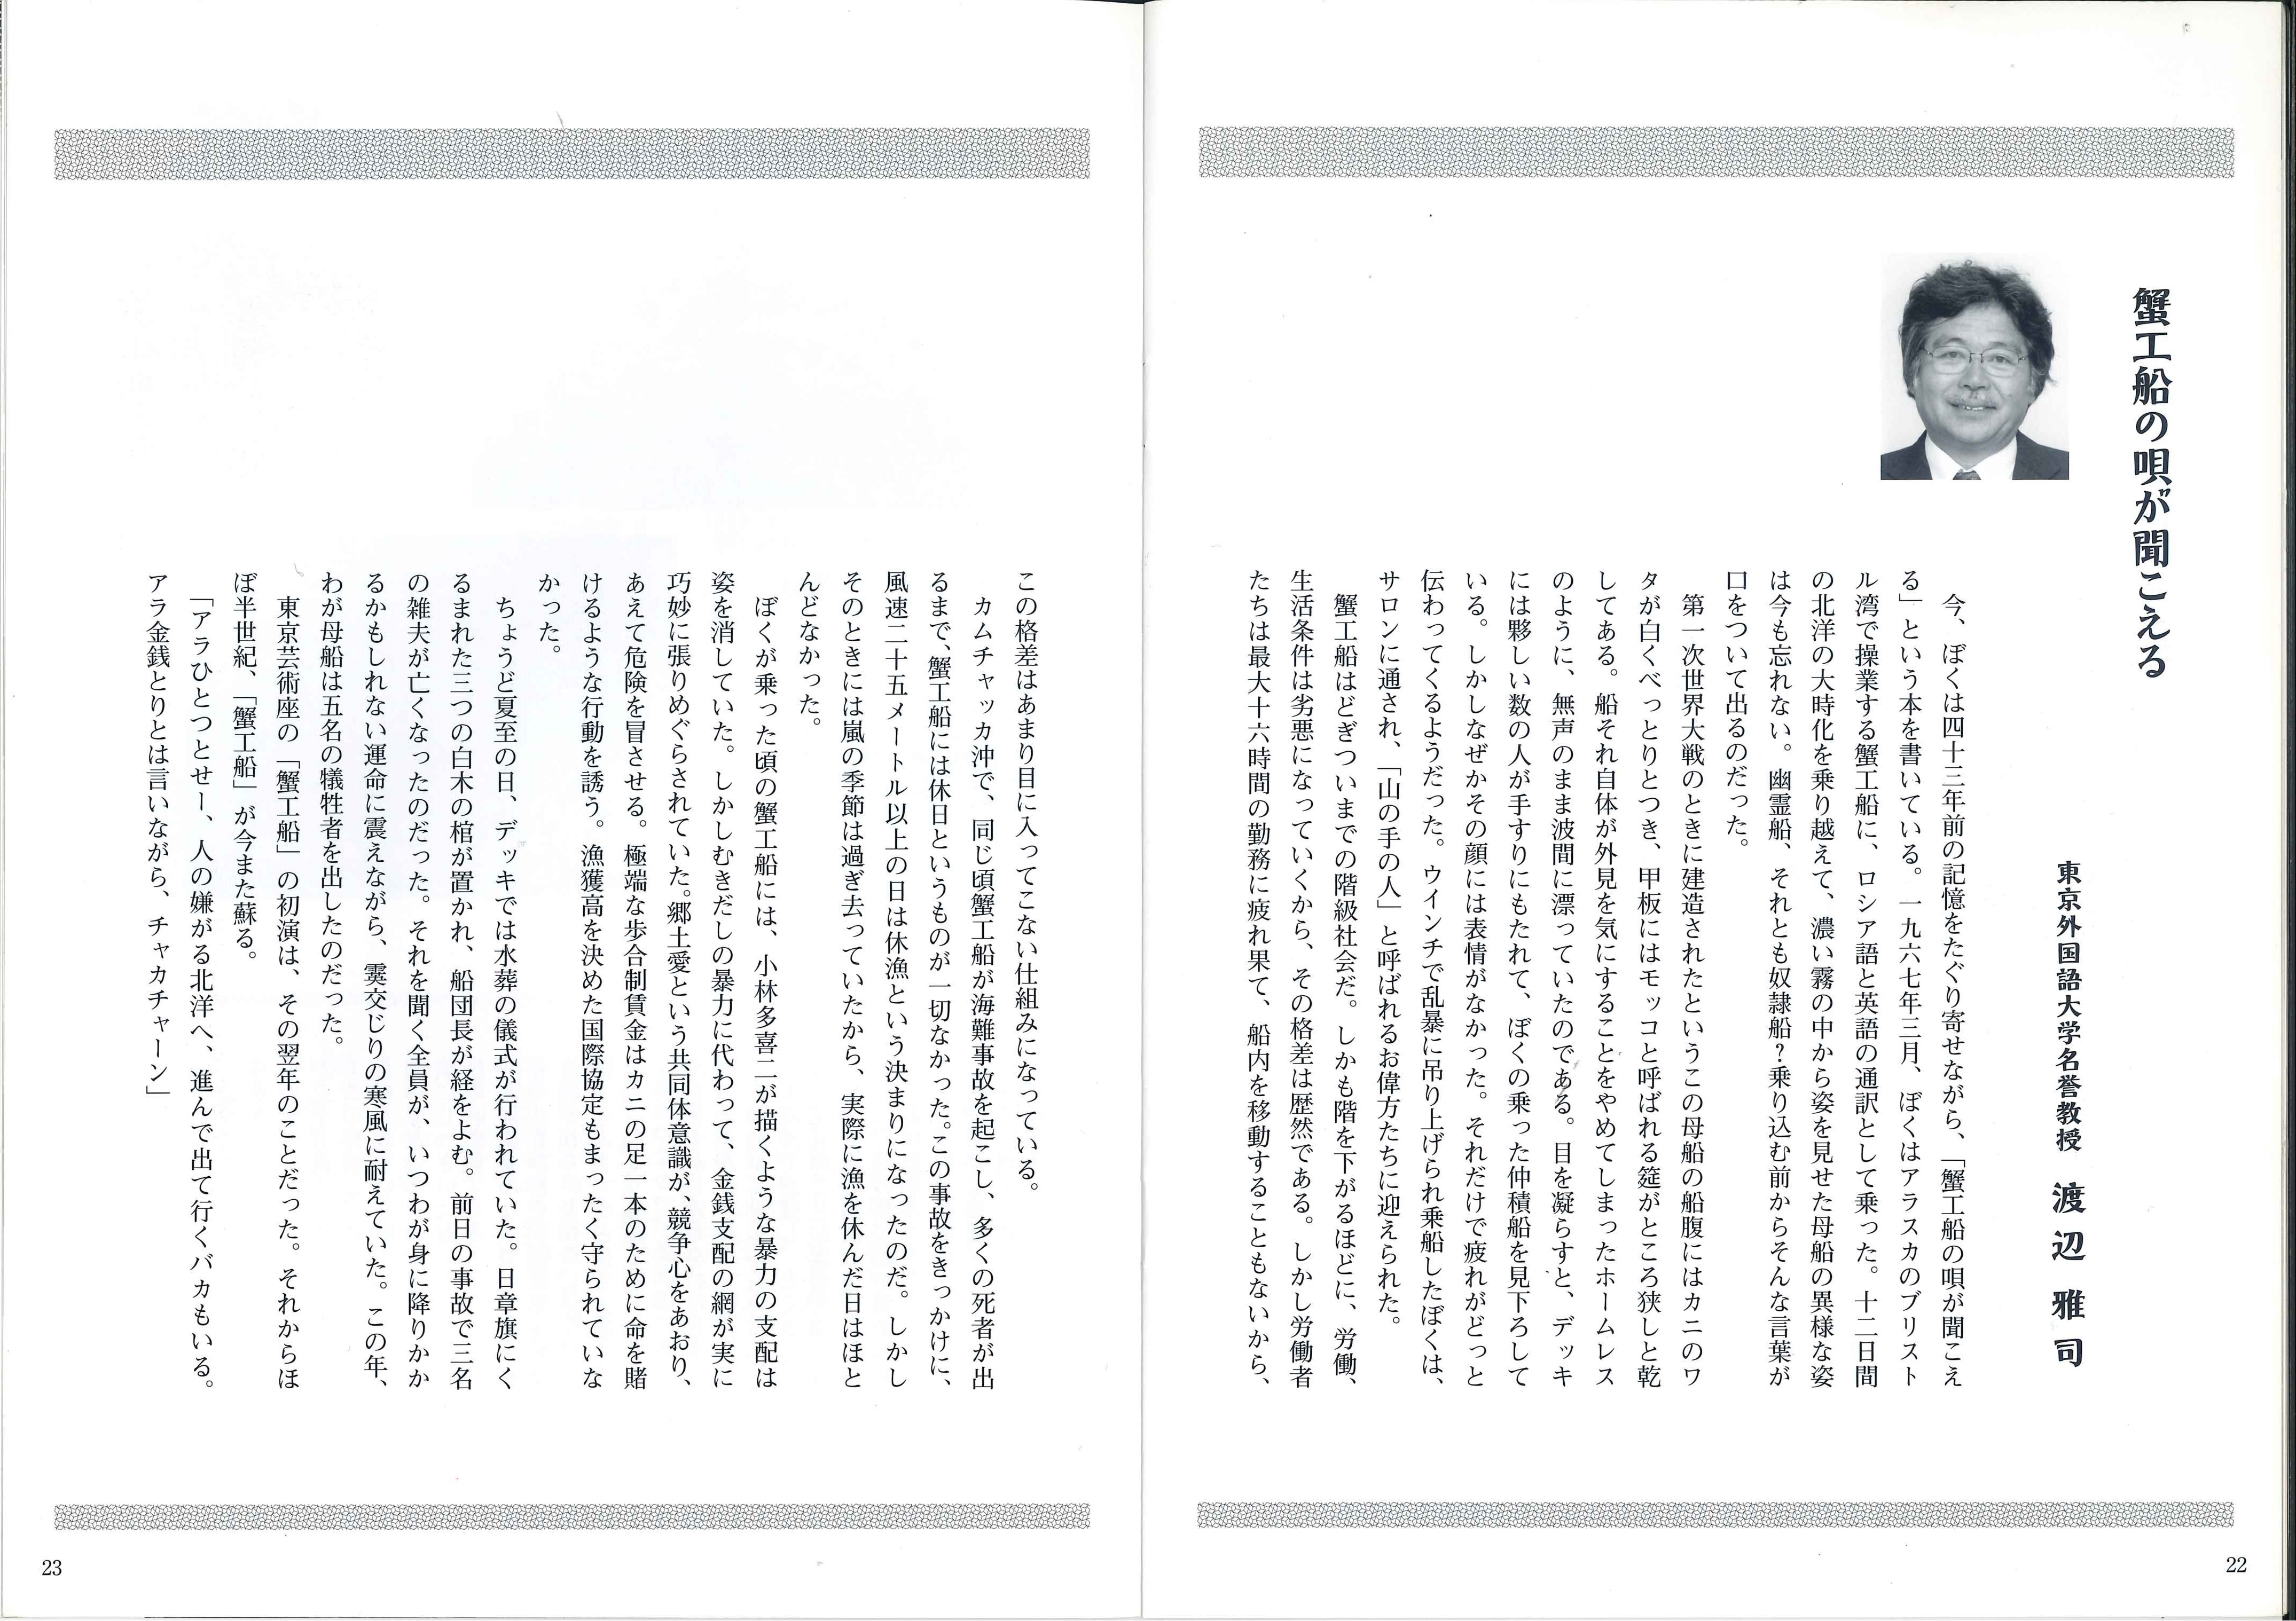 蟹工船の唄が聞こえる
東京外国語大学名誉教授 渡辺雅司
今、ぼくは四十三年前の記憶をたぐり寄せながら、「蟹工船の唄が聞こえ
る」という本を書いている。一九六七年三月、ぼくはアラスカのブリスト
ル湾で操業する蟹工船に、ロシア語と英語の通訳として乗った。十二日間
の北洋の大時化を乗り越えて、濃い霧の中から姿を見せた母船の異様な姿
は今も忘れない。幽霊船、それとも奴隷船?乗り込む前からそんな言葉が
口をついて出るのだった。
第一次世界大戦のときに建造されたというこの母船の船腹にはカニのワ
タが白くべっとりとつき、甲板にはモッコと呼ばれる筵がところ狭しと乾
してある。船それ自体が外見を気にすることをやめてしまったホームレス
のように、無声のまま波間に漂っていたのである。目を凝らすと、デッキ
には夥しい数の人が手すりにもたれて、ぼくの乗った仲積船を見下ろして
いる。しかしなぜかその顔には表情がなかった。それだけで疲れがどっと
伝わってくるようだった。ウインチで乱暴に吊り上げられ乗船したぼくは、
サロンに通され、「山の手の人」と呼ばれるお偉方たちに迎えられた。
蟹工船はどぎついまでの階級社会だ。しかも階を下がるほどに、労働、
生活条件は劣悪になっていくから、その格差は歴然である。しかし労働者
たちは最大十六時間の勤務に疲れ果て、船内を移動することもないから、
この格差はあまり目に入ってこない仕組みになっている。
カムチャッカ沖で、同じ頃蟹工船が海難事故を起こし、多くの死者が出
るまで、蟹工船には休日というものが一切なかった。この事故をきっかけに、
風速二十五メートル以上の日は休漁という決まりになったのだ。しかし
そのときには嵐の季節は過ぎ去っていたから、実際に漁を休んだ日はほと
んどなかった。
ぼくが乗った頃の蟹工船には、小林多喜二が描くような暴力の支配は
姿を消していた。しかしむきだしの暴力に代わって、金銭支配の網が実に
巧妙に張りめぐらされていた。郷土愛という共同体意識が、競争心をあおり、
あえて危険を冒させる。極端な歩合制賃金はカニの足一本のために命を賭
けるような行動を誘う。漁獲高を決めた国際協定もまったく守られていな
かった。
ちょうど夏至の日、デッキでは水葬の儀式が行われていた。日章旗にく
るまれた三つの白木の棺が置かれ、船団長が経をよむ。前日の事故で三名
の雑夫が亡くなったのだった。それを聞く全員が、いつわが身に降りかか
るかもしれない運命に震えながら、霙交じりの寒風に耐えていた。この年、
わが母船は五名の犠牲者を出したのだった。
東京芸術座の「蟹工船」の初演は、その翌年のことだった。それからほ
ぼ半世紀、「蟹工船」が今また蘇る。
「アラひとつとせー、人の嫌がる北洋へ、進んで出て行くバカもいる。
アラ金銭とりとは言いながら、チャカチャーン」
22
23